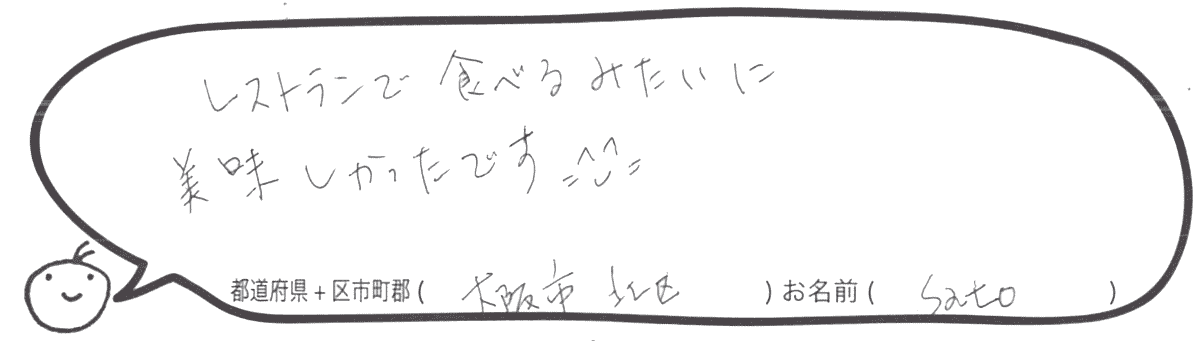 レストランで食べるみたいに
美味しかったです
都道府県+区市町郡(大阪市北区)お名前(sato)